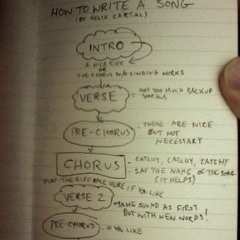 HOW TO WRITE A SONG
(BY FELIX CARTAL)
INTRO
A NICE RIFF
OR
THE CHORUS W/O SINGING WORKS
VERSE
- NOT TOO MUCH BACKUP
VOCALS
PRE-CHORUS
- THESE ARE NICE
BUT NOT
NECESSARY
CHORUS
- CATCHY, CATCHY, CATCHY
- SAY THE NAME OF THE SONG
(IT HELPS)
PLAY THE RIFF HERE IF YA LIKE
VERSE 2
- SAME SOUND AS FIRST
BUT WITH NEW WORDS!
PRE-CHORUS
- IF YA LIKE